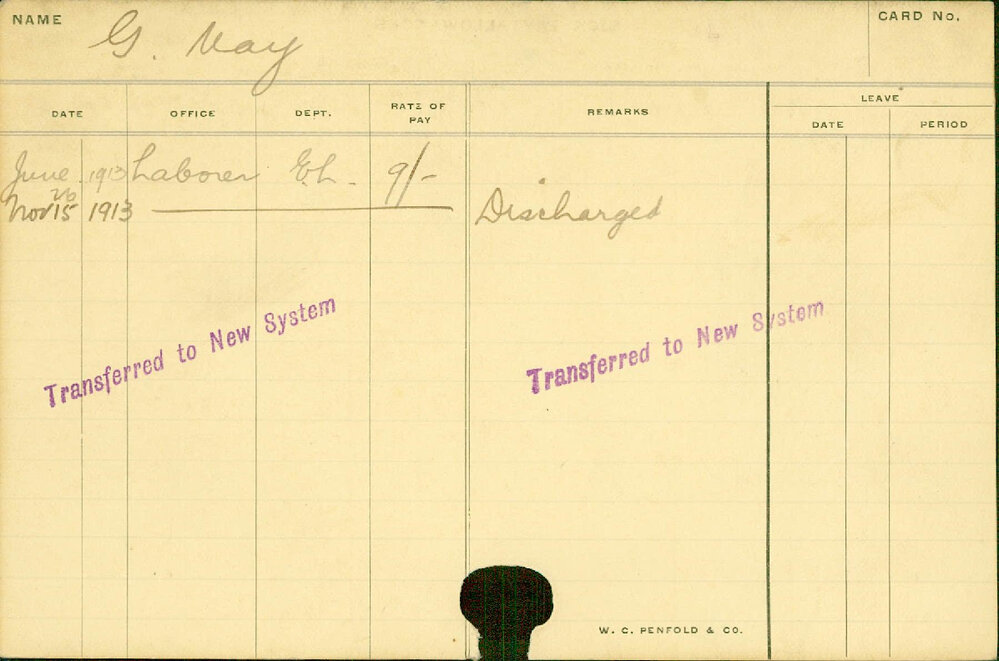 NAME G. Vay CARD No.
DATE OFFICE DEPT. RATE OF PAY REMARKS LEAVE
DATE PERIOD
June 1913 Laborer E.L. 9/-
26
Nov 15 1913 Discharged
Transferred to New System Transferred to New System
W. C. PENFOLD & CO.